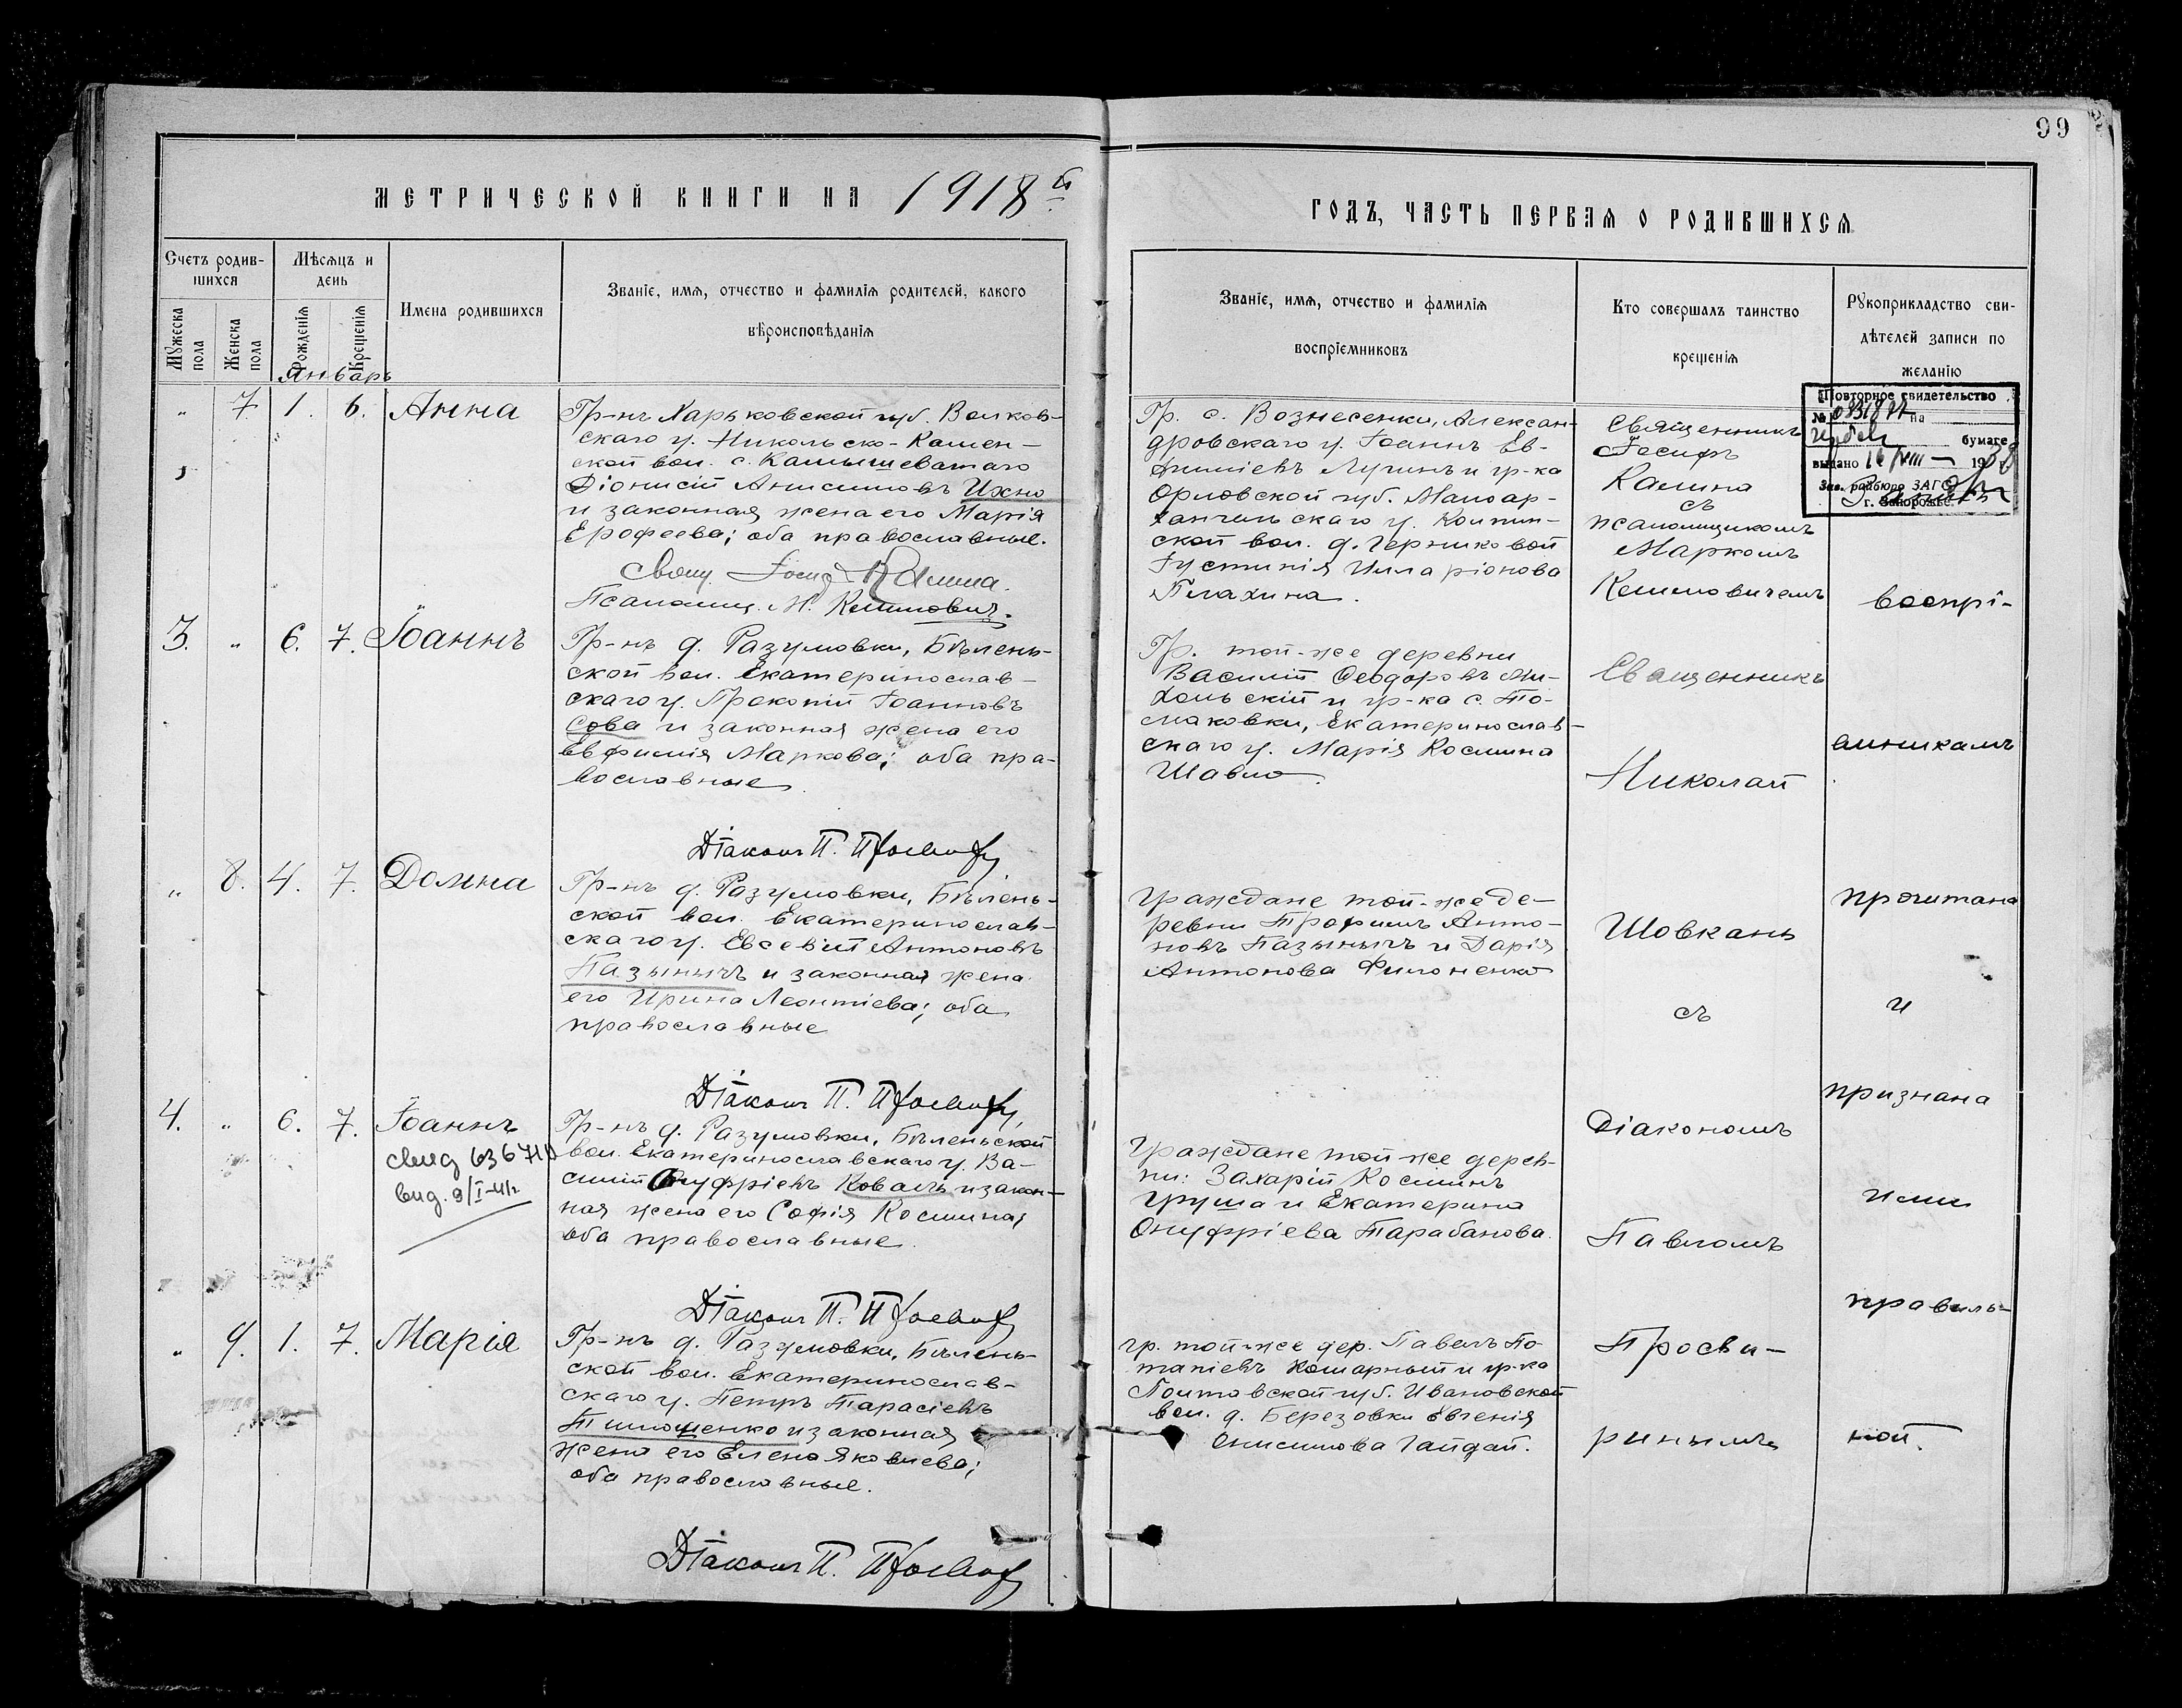 99
МЕТРИЧЕСКОЙ КНИГИ НА 1918й
ГОДЪ, ЧАСТЬ ПЕРВАЯ О РОДИВШИХСЯ
Счетъ родив-
шихся
Мѣсяцъ и
день
Мужеска
пола
Женска
пола
Рожденія
Крещенія
Имена родившихся
Званіе, имя, отчество и фамилія родителей, какого
вѣроисповѣданія
Званіе, имя, отчество и фамилія
воспріемниковъ
Кто совершалъ таинство
крещенія
Рукоприкладство сви-
дѣтелей записи по
желанію
Январь
„ 7 1. 6. Анна
Гр-нъ Харьковской губ. Волков-
скаго у. Никольско-Камен-
ской вол. с. Камышеватаго
Діонисій Анисимовъ Ихно
и законная жена его Марія
Ерофеева; оба православные.
Свящ. Іосиф Калина.
Псаломщ. М. Келимович.
Гр. с. Вознесенки, Алексан-
дровскаго у. Іоаннъ Ев-
фиміевъ Лугинъ и гр-ка
Орловской губ. Малоар-
хангельскаго у. Колпин-
ской вол. д. Герниковой
Іустинія Илларіонова
Плахина.
Священникъ
Іосифъ
Калина
съ
псаломщикомъ
Маркомъ
Келимовичемъ
Повторное свидетельство
№ на
бумаге
выдано 16/VIII 1938 г.
Зав. райбюро ЗАГС
г. Запорожье.
3. „ 6. 7. Іоаннъ
Гр-нъ д. Разумовки, Бѣлень-
ской вол. Екатеринослав-
скаго у. Прокопій Іоанновъ
Сова и законная жена его
Евфимія Маркова; оба пра-
вославные.
Діаконъ П. Просвир
Гр. той-же деревни
Василій Ѳеодоровъ Ми-
хольскій и гр-ка с. То-
маковки, Екатеринослав-
скаго у. Марія Космина
Шавло.
„ 8. 4. 7. Домна
Гр-нъ д. Разумовки, Бѣлень-
ской вол. Екатеринослав-
скаго у. Евсевій Антоновъ
Пазыничъ и законная жена
его Ирина Леонтіева; оба
православные
Діаконъ П. Просвир
Граждане той-же де-
ревни Трофимъ Анто-
новъ Пазыничъ и Дарія
Антонова Филоненко
4. „ 6. 7. Іоаннъ
свид 636710
выд. 9/I-41г
Гр-нъ д. Разумовки, Бѣленьской
вол. Екатеринославскаго у. Ва-
силій Онуфріевъ Коваль и закон-
ная жена его Софія Космина;
оба православные.
Діаконъ П. Просвир
Граждане той-же дерев-
ни: Захарій Косминъ
Груша и Екатерина
Онуфріева Тарабанова.
„ 9. 1. 7. Марія
Гр-нъ д. Разумовки, Бѣлень-
ской вол. Екатеринослав-
скаго у. Петръ Тарасіевъ
Тимошенко и законная
жена его Елена Яковлева;
оба православные.
Діаконъ П. Просвир
Гр. той-же дер. Павелъ По-
тапіевъ Кошарный и гр-ка
Полтавской губ. Ивановской
вол. д. Березовки Евгенія
Онисимова Гайдай.
Священникъ
Николай
Шовкань
съ
Діакономъ
Павломъ
Просви-
ринымъ
воспрі-
емникамъ
прочитана
и
признана
ими
правиль-
ной.